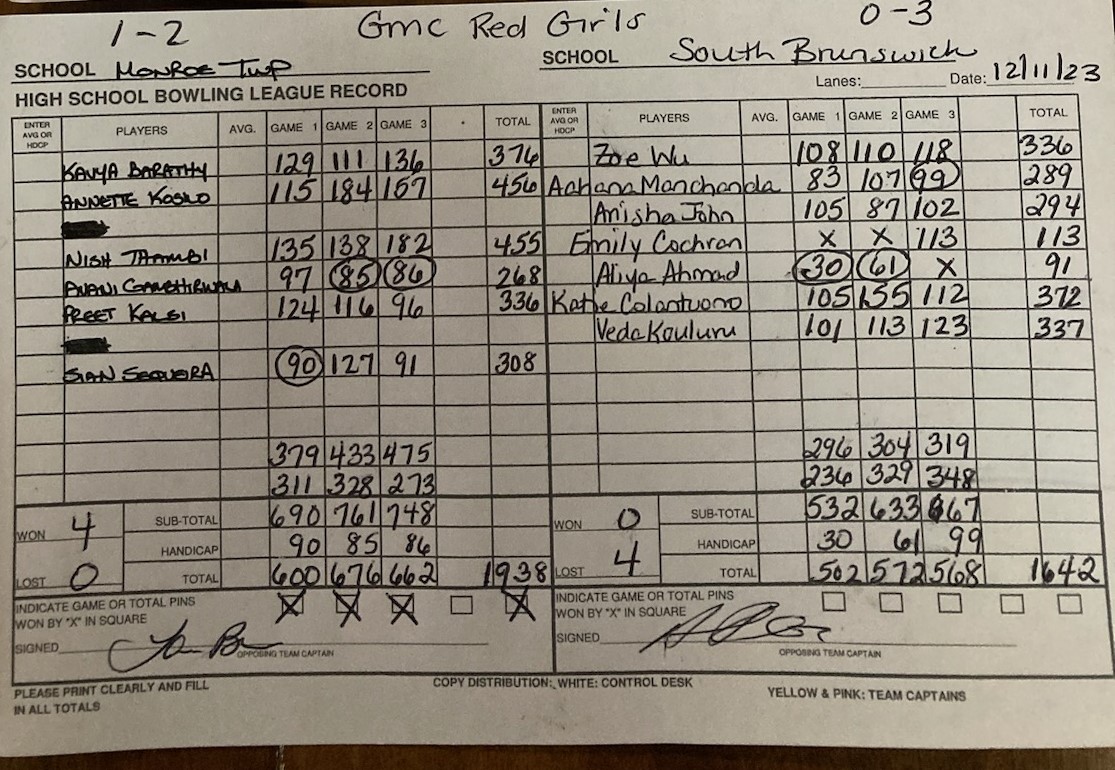 1-2 Gmc Red Girls 0-3
SCHOOL MONROE TWP SCHOOL South Brunswick
Lanes: Date: 12/11/23
HIGH SCHOOL BOWLING LEAGUE RECORD
ENTER AVG OR HDCP PLAYERS AVG. GAME 1 GAME 2 GAME 3 TOTAL ENTER AVG OR HDCP PLAYERS AVG. GAME 1 GAME 2 GAME 3 TOTAL
KAVYA BARATHY 129 111 136 376 Zoe Wu 108 110 118 336
ANNETTE KOSLO 115 184 157 456 Aahana Manchanda 83 107 99 289
Anisha John 105 87 102 294
NISH THAMBI 135 138 182 455 Emily Cochran X X 113 113
AVANI 97 85 86 268 Aliya Ahmad 30 61 X 91
PREET KALSI 124 116 96 336 Katie Colantuono 105 155 112 372
Veda Kouluru 101 113 123 337
SIAN SEQUEIRA 90 127 91 308
379 433 475 296 304 319
311 328 273 236 329 348
WON 4 SUB-TOTAL 690 761 748 WON 0 SUB-TOTAL 532 633 667
HANDICAP 90 85 86 HANDICAP 30 61 99
LOST 0 TOTAL 600 676 662 1938 LOST 4 TOTAL 502 572 568 1642
INDICATE GAME OR TOTAL PINS WON BY "X" IN SQUARE X X X X INDICATE GAME OR TOTAL PINS WON BY "X" IN SQUARE
SIGNED OPPOSING TEAM CAPTAIN SIGNED OPPOSING TEAM CAPTAIN
PLEASE PRINT CLEARLY AND FILL IN ALL TOTALS COPY DISTRIBUTION: WHITE: CONTROL DESK YELLOW & PINK: TEAM CAPTAINS